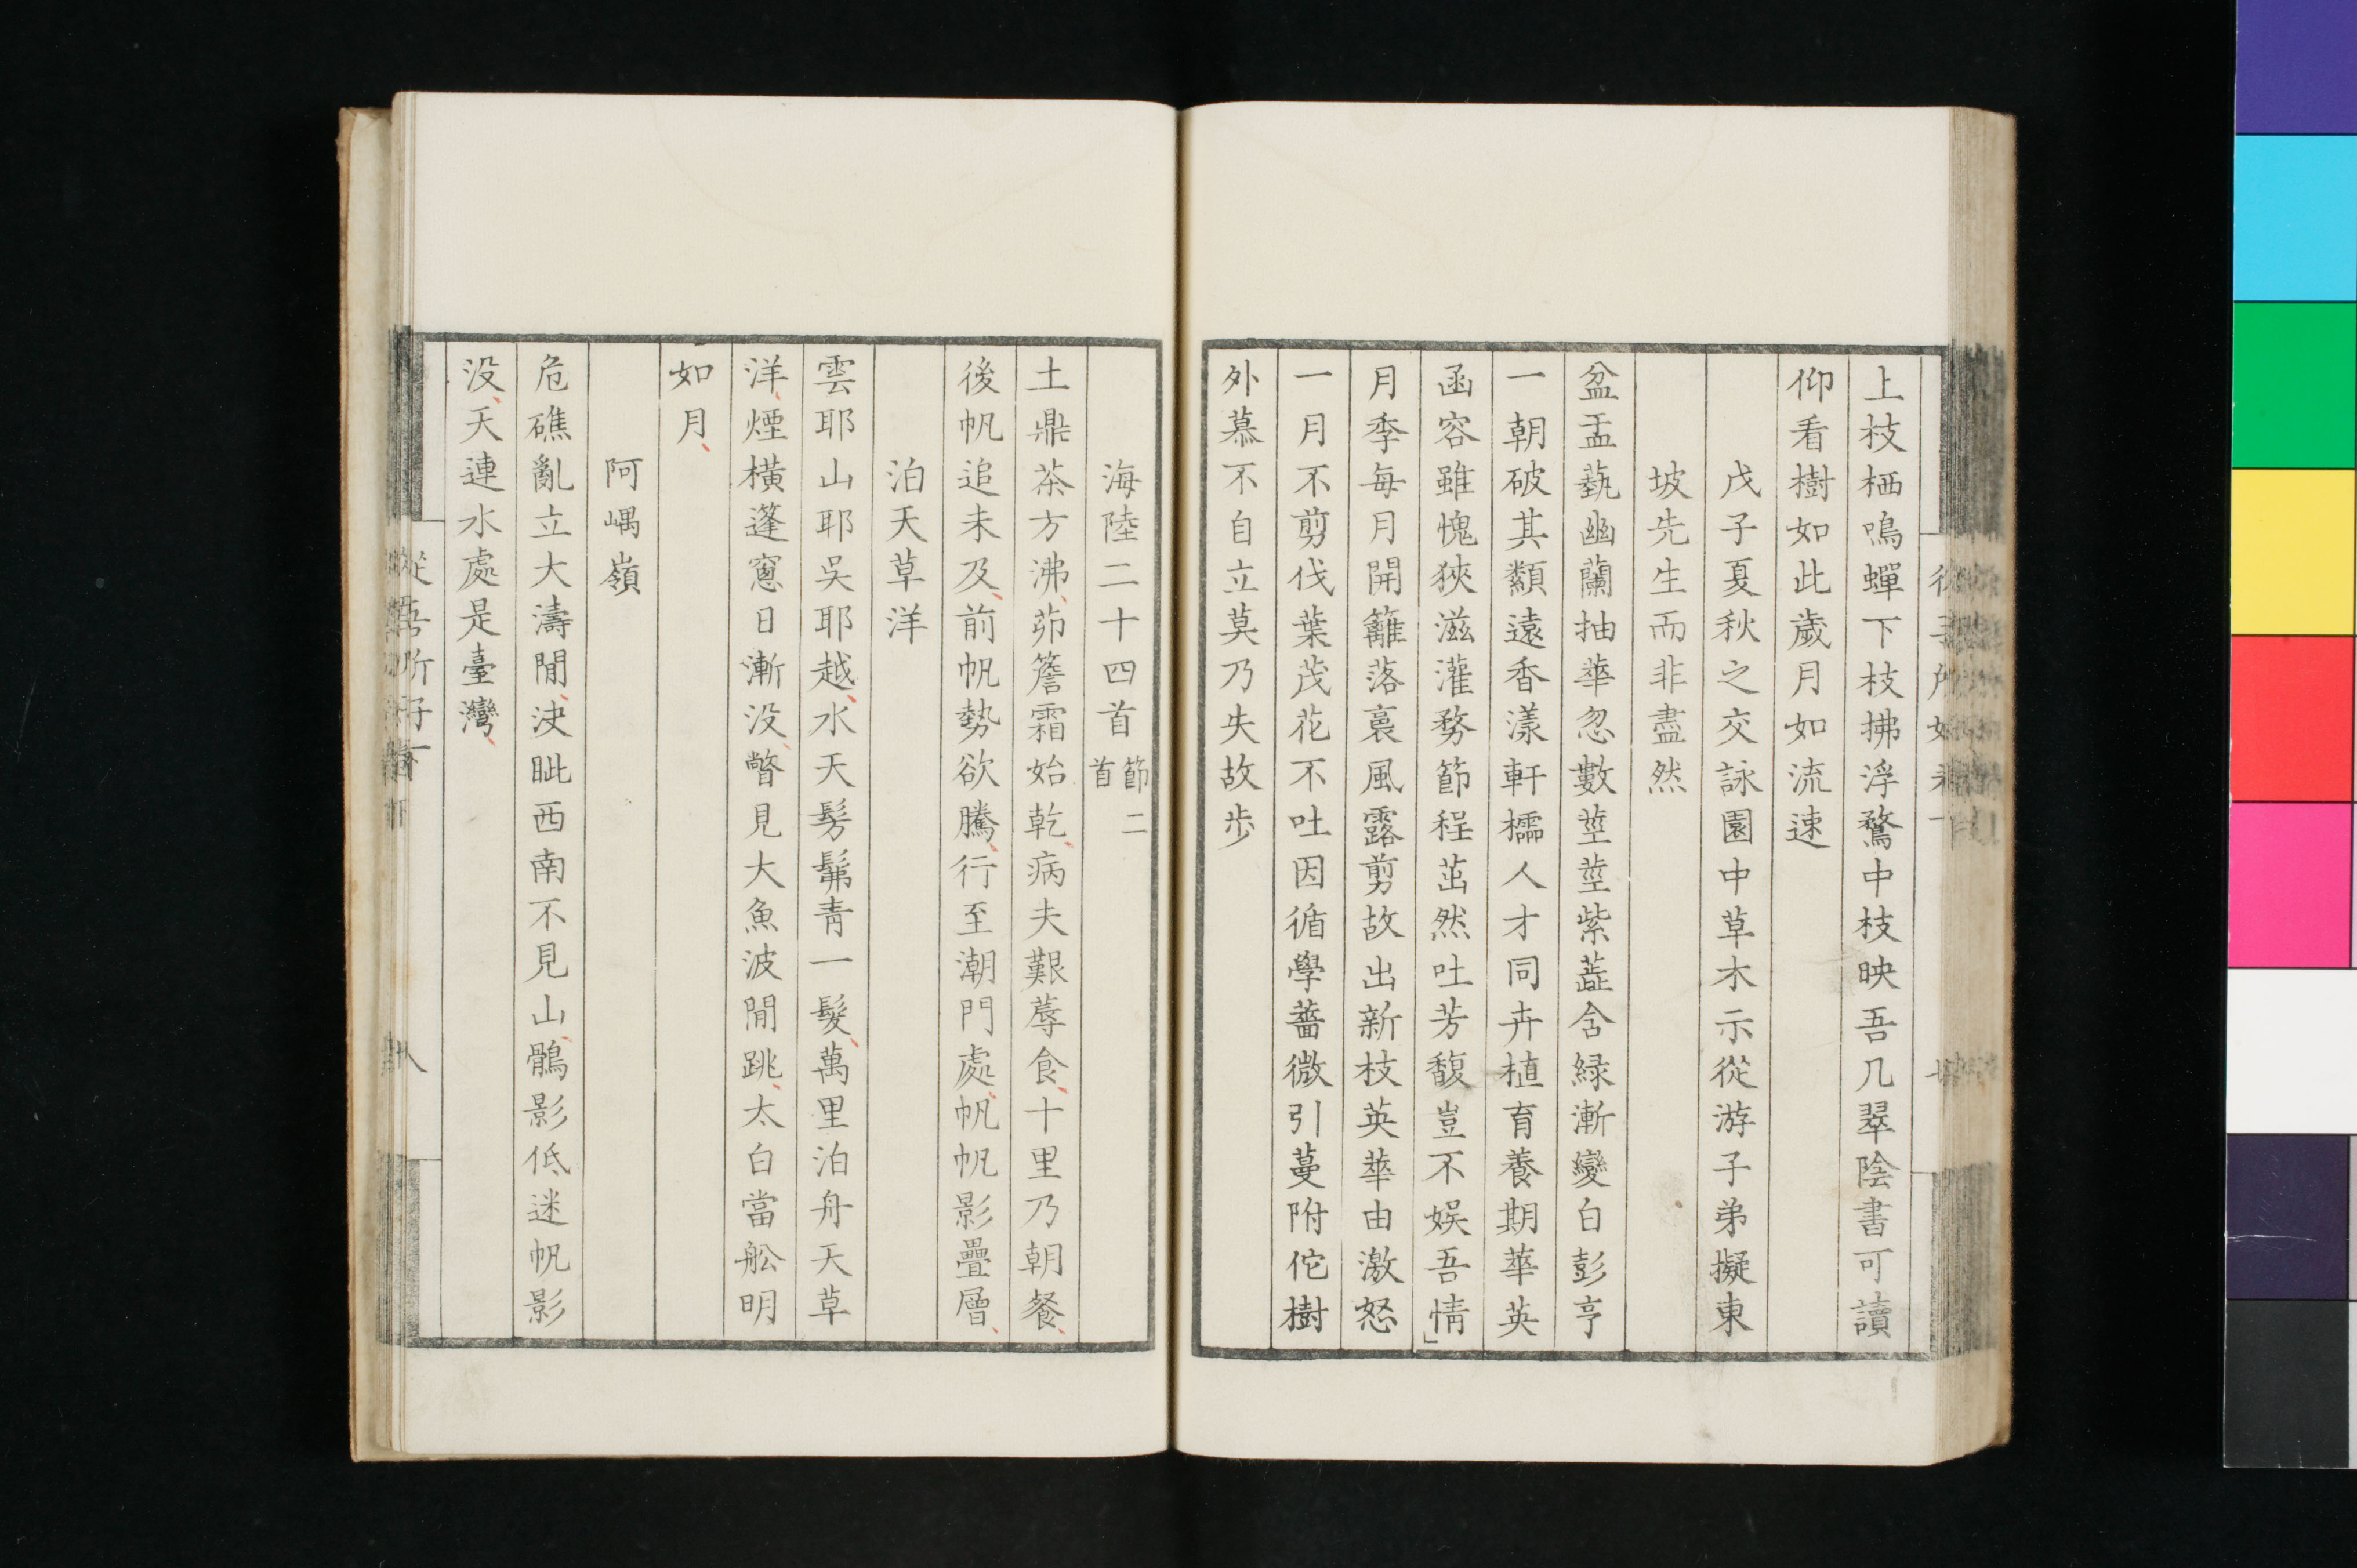 上枝栖鳴蟬下枝拂浮鶩中枝映吾几翠陰書可讀
仰看樹如此歲月如流速
戊子夏秋之交詠園中草木示從游子弟擬東
坡先生而非盡然
盆盂藝幽蘭抽華忽數莖莖紫蕋含緑漸變白彭亨
一朝破其纇遠香漾軒櫺人才同卉植育養期華英
函容雖愧狹滋灌務節程茁然吐芳馥豈不娛吾情
月季每月開籬落裛風露剪故出新枝英華由激怒
一月不剪伐葉茂花不吐因循學薔薇引蔓附佗樹
外慕不自立莫乃失故步
海陸二十四首節二首
土鼎茶方沸茆簷霜始乾病夫艱蓐食十里乃朝餐
後帆追未及前帆勢欲騰行至潮門處帆帆影疊層
泊天草洋
雲耶山耶吳耶越水天髣髴青一髮萬里泊舟天草
洋煙橫蓬窻日漸没瞥見大魚波間跳太白當舩明
如月
阿嵎嶺
危礁亂立大濤間決眦西南不見山鶻影低迷帆影
没天連水處是臺灣